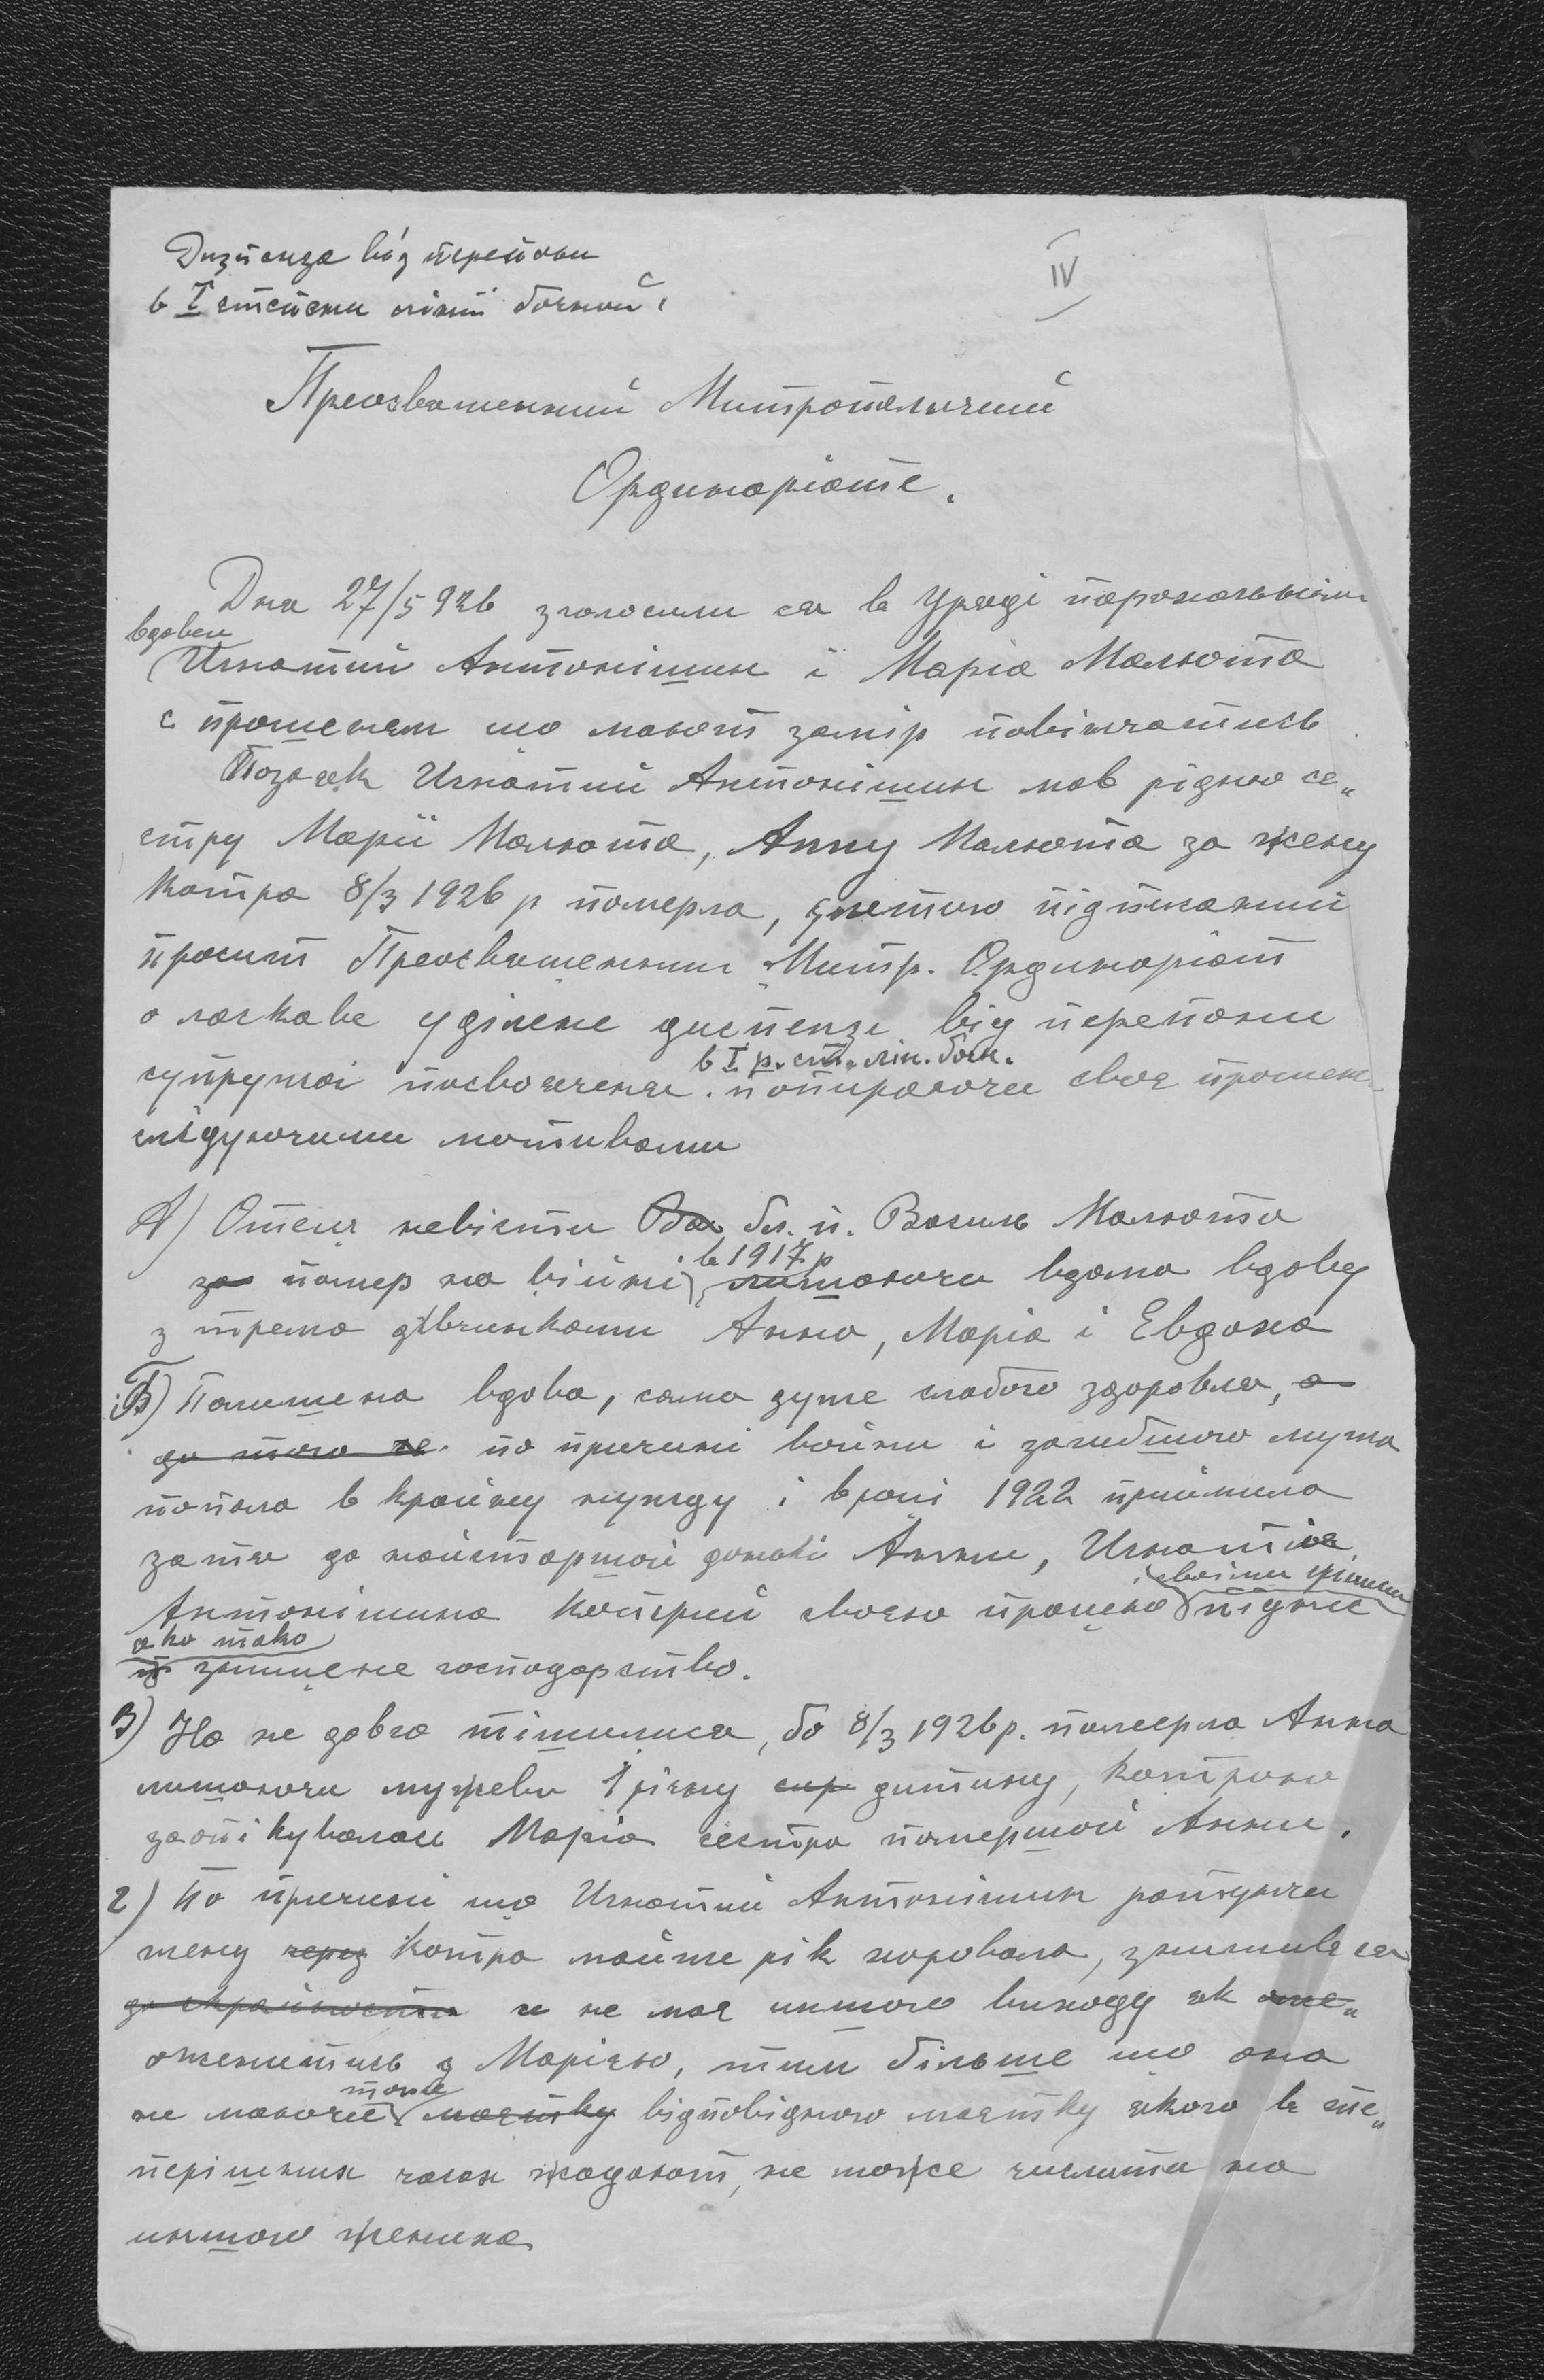 Диспенза від перепони
в I степени лінії бочной.
IV
Преосвященний Митрополичий
Ординаріяте.
Дня 27/5 926 зголосили ся в Уряді парохіяльнім
вдовец
Игнатий Антонішин і Марія Малюта
с прошенєм що мають замір повінчатись
Позаяк Игнатий Антонішин мав рідную се„
стру Марії Малюта, Анну Малюта за жену
котра 8/3 1926 р померла, длятого підписаний
просит Преосвященний Митр. Ординаріят
о ласкаве уділенє диспензи від перепони
в I р. ст. лін. боч.
супружої посвояченя. попираючи своє прошенє
слідуючими мотивами
А) Отець невісти Ва бл. п. Василь Малюта
в 1917 р
за помер на війні лишаючи вдома вдову
з трема дівчинками Анна, Марія і Евдоха
Б) Полишена вдова, сама дуже слабого здоровля, а
до того же по причині войни і загибшого мужа
попала в крайну нужду і в році 1922 приймила
зятя до найстаршої доньки Анни, Игнатія
своіми грішми
Антонішина котерий своєю працею підніс
яко тако
із знищене господарство.
В) На не довго тішилися, бо 8/3 1926 р. померла Анна
лишаючи мужеви 1 річну сир дитину, котрою
заопікувалась Марія сестра помершої Анни.
г) По причині що Игнатий Антонішин ратуючи
жену через котра майже рік хоровала, знищив ся
до крайности и не має иншого виходу як оже„
оженитись з Марією, тим більше що она
тоже
не маючи маєтку відповідного маєтку якого в те„
перішних часах жадают, не може числити на
иншого жениха